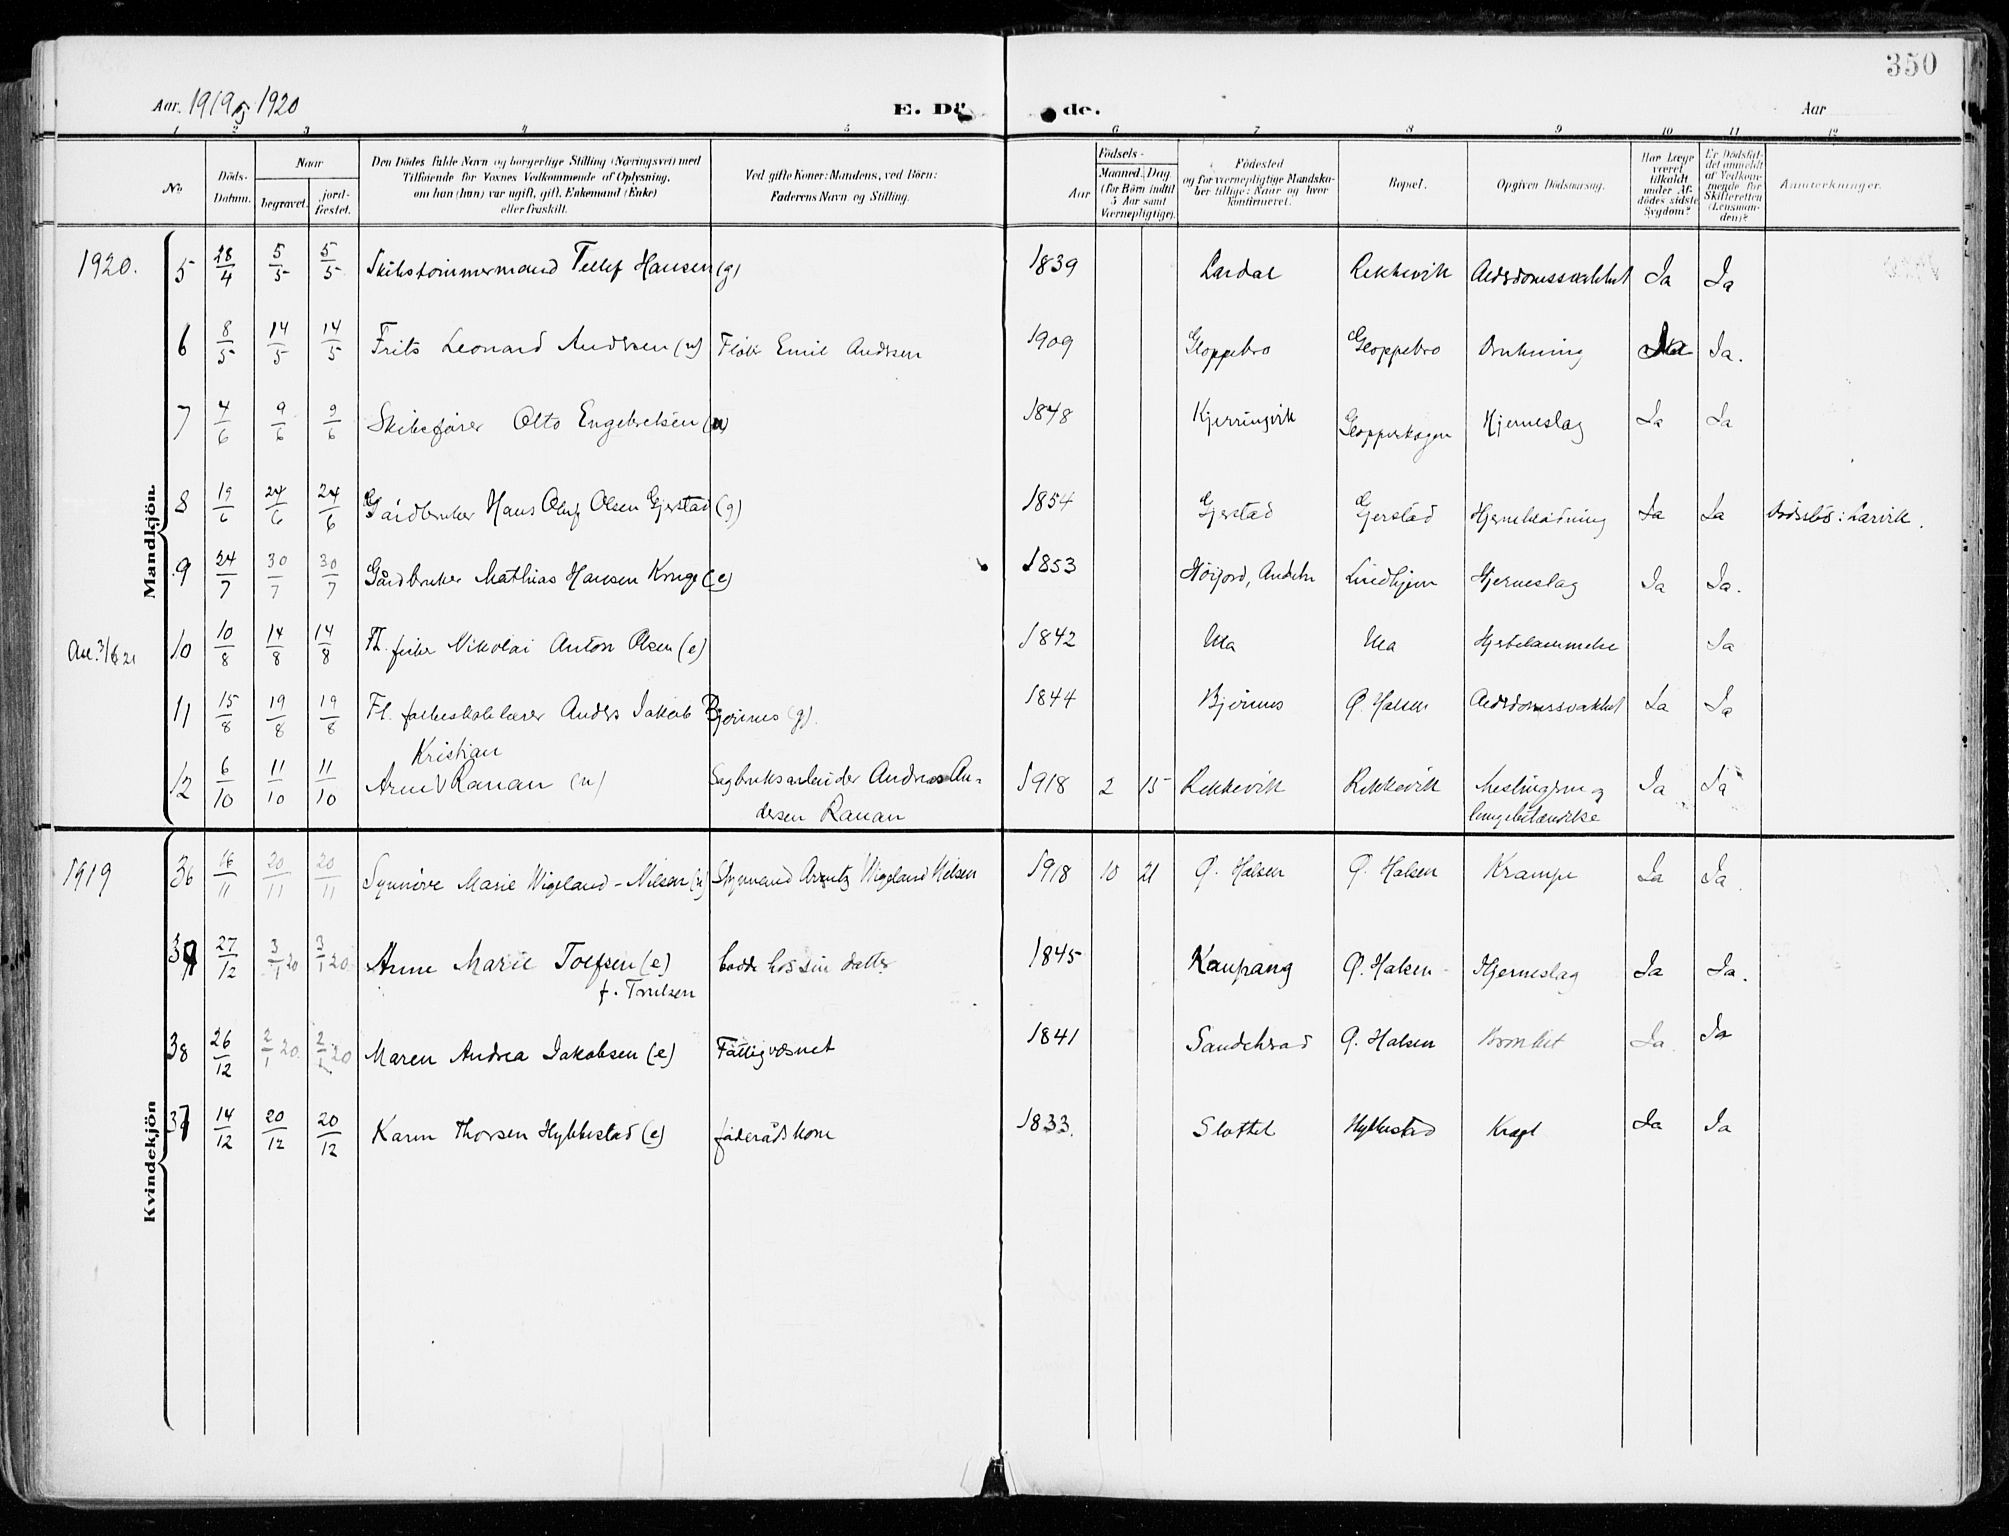 350
Aar. 1919 og 1920 E. Dö de. Aar
1 2 3 4 5 6 7 8 9 10 11 12
No
Döds-Datum.
Naar
begravet.
jord-fæstet.
Den Dödes fulde Navn og borgerlige Stilling (Næringsvei) med
Tilföiende for Voxnes Vedkommende af Oplysning,
om han (hun) var ugift, gift, Enkemand (Enke)
eller fraskilt.
Ved gifte Koner: Mandens, ved Börn:
Faderens Navn og Stilling.
Födsels-
Aar
Maaned. Dag.
(for Börn indtil
5 Aar samt
Værnepligtige).
Födested
og for værnepligtige Mandska-
ber tillige: Naar og hvor
konfirmeret.
Bopæl.
Opgiven Dödsaarsag.
Har Læge
været
tilkaldt
under Af-
dödes sidste
Sygdom?
Er Dödsfal-
det anmeldt
af Vedkom-
mende for
Skifteretten
(Lensman-
den)?
Anmærkninger.
Mandkjön.
1920. 5 28/4 5/5 5/5 Skibstømmermand Tellef Hansen (g) 1839 Lardal Rekkevik Alderdomssvakhet Ja Ja
6 8/5 14/5 14/5 Frits Leonard Andersen (u) Fløtr Emil Andersen 1909 Gloppebro Gloppebro Drukning Ja Ja.
7 4/6 9/6 9/6 Skibsfører Otto Engebretsen (u) 1848 Kjerringvik Gloppeskogen Hjerneslag Ja Ja
8 19/6 24/6 24/6 Gårdbruker Hans Oluf Olsen Gjerstad (g) 1854 Gjerstad Gjerstad Hjerneblødning Ja Ja Dødsbø: Larvik.
9 24/7 30/7 30/7 Gårdbruker Mathias Hansen Kruge (e) 1853 Høijord, Andebu Lindhjem Hjerneslag Ja Ja.
10 10/8 14/8 14/8 Fh. fisker Nikolai Anton Olsen (e) 1842 Ula Ula Hjertelammelse Ja
11 15/8 19/8 19/8 Fl. folkeskolelærer Anders Jakob Bjørnnes (g). 1844 Bjørnnes Ø. Halsen Alderdomssvakhet Ja Ja
Kristian
12 6/10 11/10 11/10 Arne V Ranan (u) Sagbruksarbeider Andreas An-
dersen Ranan 1918 2 15 Rekkevik Rekkevik Meslinger og
lungebetændelse Ja Ja
Kvindekjön
1919 36 16/11 20/11 20/11 Synnøve Marie Wigeland-Nilsen (u) Styrmand Arentz Wigeland Nilsen 1918 10 21 Ø. Halsen Ø. Halsen Krampe Ja Ja.
37 27/12 3/1 20 3/1 20 Anne Marie Tolfsen (e) bodde hos sin datter 1845 Kaupang Ø. Halsen Hjerneslag Ja Ja.
f. Trulsen
38 26/12 2/1 20 2/1 20 Maren Andrea Jakobsen (e) Fattigvæsnet 1841 Sandeherad Ø. Halsen Bronkit Ja Ja
14/12 20/12 20/12 Karen Thorsen Hybbestad (e) føderådskone 1833. Slottet Hybbestad Kræft Ja Ja